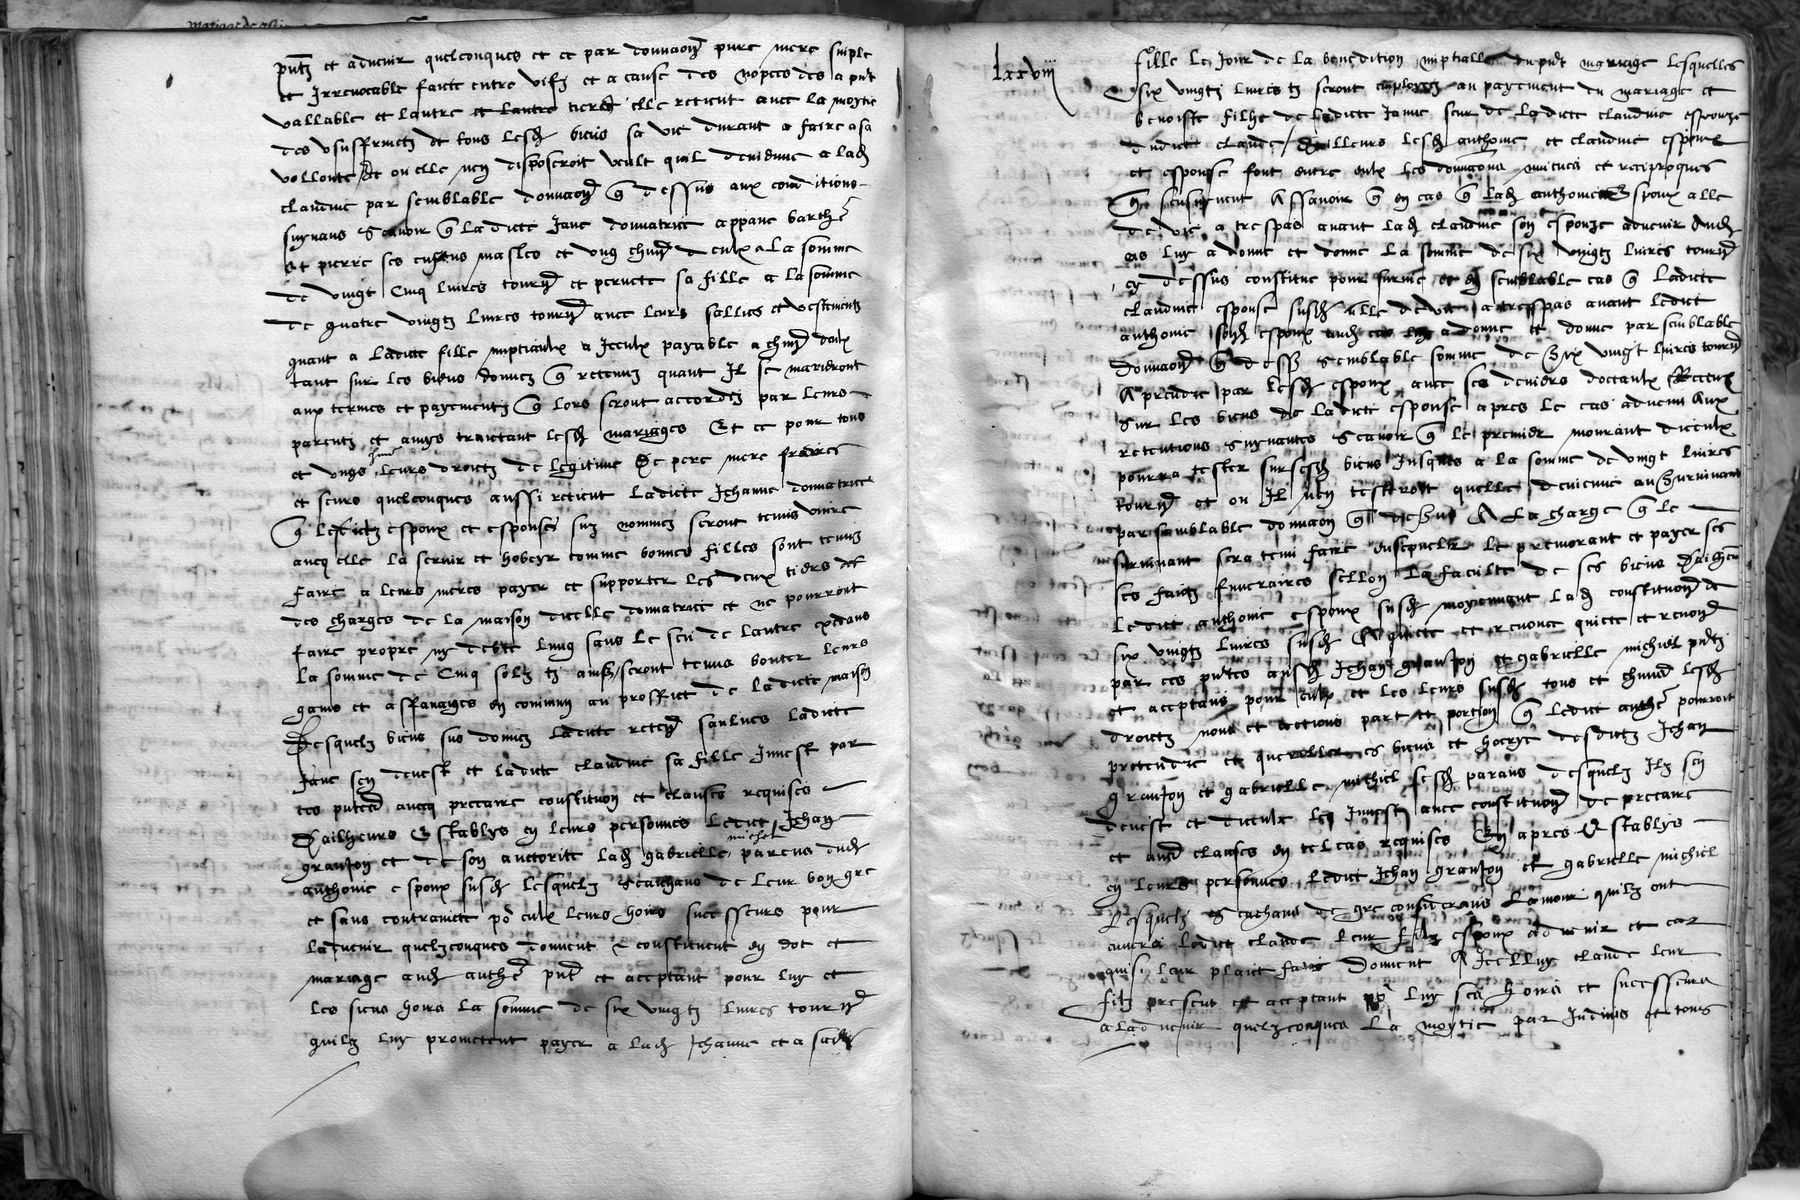 mariage de
pntz et advenir quelconques et ce par donnaon pure mere simple
et irrevocable faicte entre vifz et a cause des nopces des a pnt
vallable et lautre et lautre tierce elle retient avec la moytie
des usuffruictz de tous lesd biens sa vie durant a faire a sa
vollonte et ou elle nen disposeroit veult quil devienne a lad
claudine par semblable donnaon q dessus aux conditions
suyvans scavoir q ladicte Jane donnatrice appane barthe
et pierre ses enfens masles et ung chung deulx a la somme
de vingt cinq livres tourn et pernete sa fille a la somme
de quatre vingtz livres tourn avec leurs sallies et vestementz
quant a ladicte fille nuptiaulx a iceulx payable a chung deulx
tant sur les biens donnez q retenuz quant Il se marieront
aux termes et payementz q lors seront accordez par leurs
parentz et amys traictant lesd mariages Et ce pour tous
et ungs leurs droictz de legitime de pere mere freres
et seurs quelconques aussi retient ladicte Jehanne donnatrice
q lesdictz espoux et espouse suz nommez seront tenus vivre
avecq elle la servir et hobeyr comme bonnes filles sont tenuz
faire a leurs meres payer et supporter les deux tiers des
des charges de la maison dicelle donnatrice et ne pourront
faire propre ny debte lung sans le sceu de lautre excedans
la somme de cinq solz tz ains seront tenus bouter leurs
gains et affanaiges en commun au proffict de ladicte maison
Desquelz biens sus donnez ladicte reten saulves ladicte
Jane sen devest et ladicte claudine sa fille Invest par
ces pntes avecq precaire constitution et clauses requises
Dailheurs Establys en leurs personnes ledict Jehan
michel
granjon et de son auctorite lad gabrielle parens dud
anthoine espoux susd lesquelz scaichans de leur bon gre
et sans contraincte po eulx leurs hoirs successeurs pour
ladvenir quelzconques donnent & constituent en dot et
mariage aud anthe pnt et acceptant pour luy et
les siens hoirs la somme de six vingtz livres tourn
quilz luy promectent payer a lad Jehanne et a sad
lxxviii
fille le Jour de la benediction nuptialle du pnt mariage lesquelles
six vingtz livres tz seront employez au payement du mariage et
benoiste filhe de ladicte Janne seur de ladicte claudine espouze
dudict claude Dailleurs lesd anthoine et claudine espoux
et espouse font entre eulx les donnaons mutuelz et reciproques
q sensuyvent Assavoir q en cas q lad anthoine Espoux alle
de vie a trespas avant lad claudine son espouze advenir Aud
cas luy a donne et donne la somme de six vingtz livres tourn
cy dessus constitue pour survie et en semblable cas q ladicte
claudine espouse susd alle de vie a trespas avant ledict
anthoine sond espoux aud cas luy a donne et donne par semblable
donnaon q dessus semblable somme de Six vingt livres tourn
A prendre par lesd espoux avec ses deniers doctaulx Receuz
sur les biens de ladicte espouse apres le cas advenu Aux
retentions suyvantes scavoir q le premier mourant diceulx
pourra tester sur sesd biens Jusques a la somme de vingt livres
tourn et ou Il nen testeroit quelle devienne au Survivant
par semblable donnaon q dessus A la charge q le
survivant sera tenu faire ensepvelir le premorant et payer ses
ses faictz funeraires sellon la faculte de ses biens Daigher
ledict anthoine espoux susd moyennant lad constitution de
six vingtz livres susd A quicte et renonce quicte et renon
par ces pntes ausd Jehan granjon et gabrielle michiel pntz
et acceptans pour eulx et les leurs susd tous et chund lesd
droictz noms et actions part et portion q ledict anthe pourroit
pretendre et quereller es biens et hoerye desdictz Jehan
granjon et gabrielle michiel sesd parans desquelz Ilz sen
devest et diceulx les Invest avec constitution de precaire
et aud clauses en tel cas requises En apres Establys
en leurs personnes ledict Jehan granjon et gabrielle michiel
lesquelz Scachans de gre considerans lamour quilz ont
envers ledict claude leur filz espoux advenir et car
quisi leur plaict faire donnent A Icelluy claude leur
filz present et acceptant po luy ses hoirs et successeurs
a ladvenir quelzconques la moytie par Indivis et tous